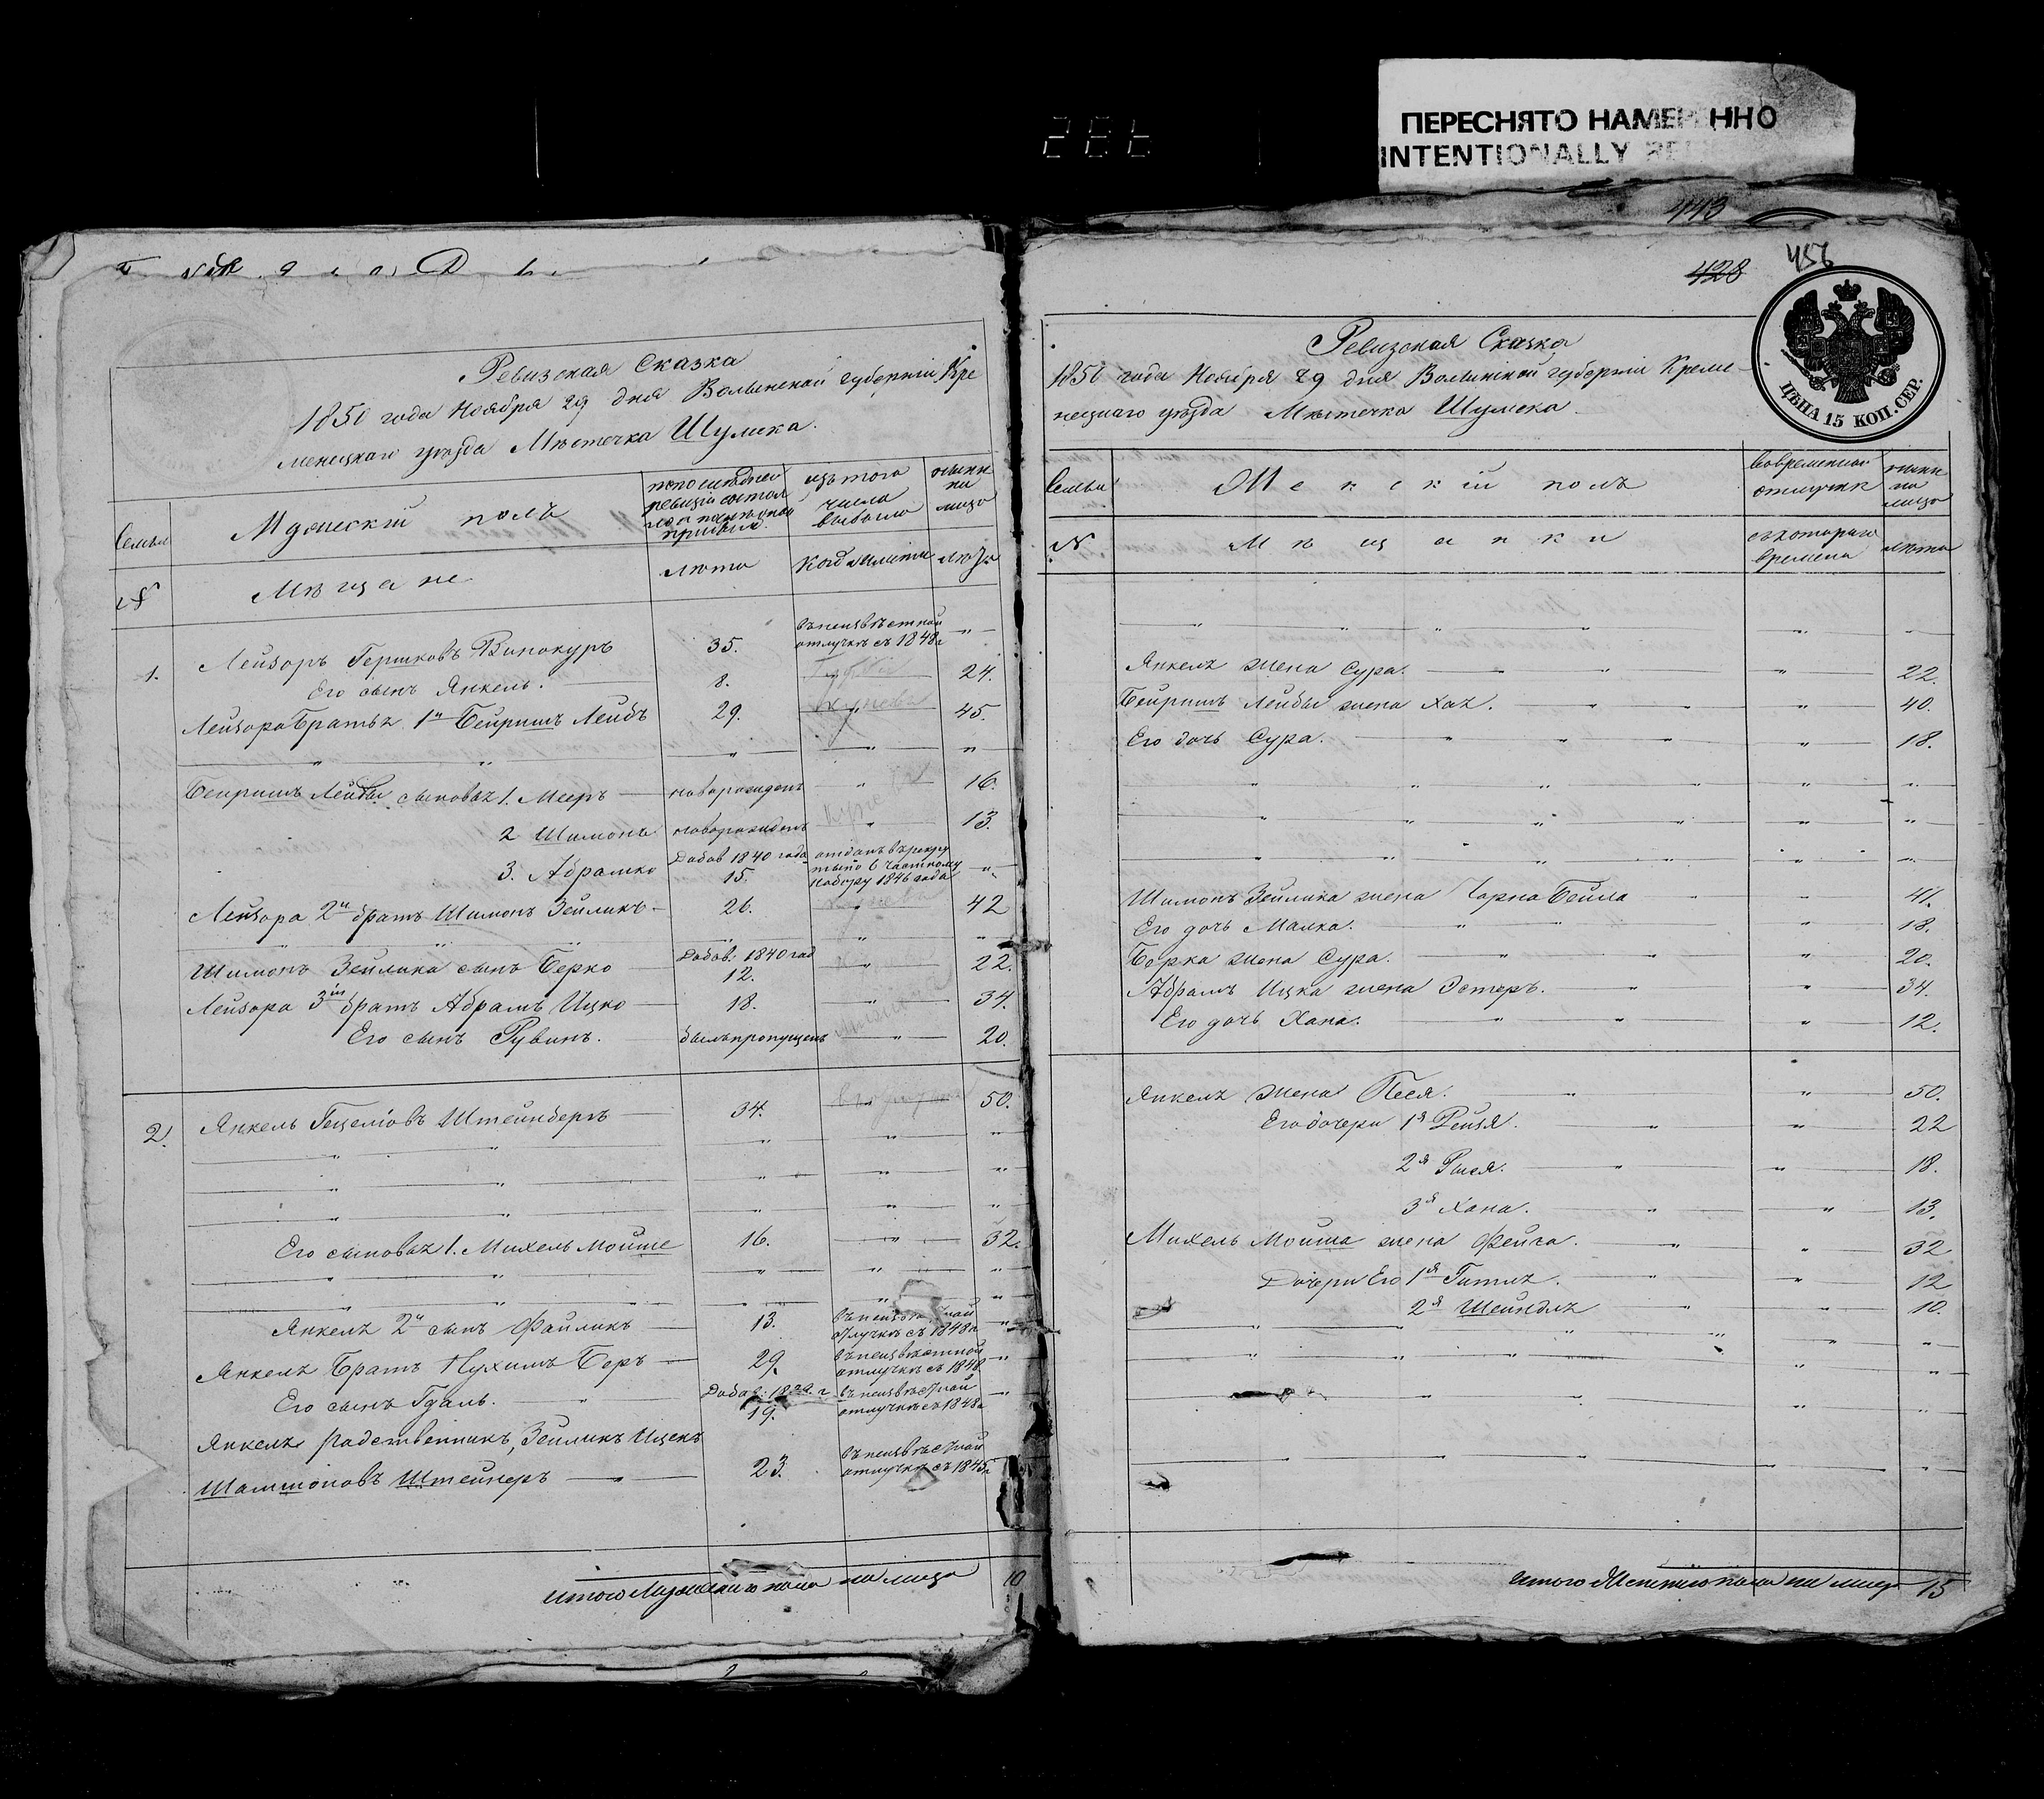 ПЕРЕСНЯТО НАМЕРЕННО
INTENTIONALLY
443
428
456
ЦѢНА 15 КОП. СЕР.
Ревизская Сказка
1850 года Ноября 29 дня Волынской губерніи Кре
менецкаго уѣзда Мѣстечка Шумска.
Семьи
Мужескій полъ
по последней ревизіи состояло и после оной прибыло
изъ того числа выбыло
нынѣ на лицо
№
Мѣщане
лѣта
когда именно
лѣта
1. Лейзоръ Гершковъ Винокуръ 35. въ неизвѣстной отлучкѣ съ 1848 г. "
Его сынъ Янкель. 8. 24.
Лейзора Братья 1й Бейришъ Лейбъ 29. " 45.
" " " " "
Бейришъ Лейбы сыновья 1. Мееръ новорожденъ " 16.
2 Шимонъ новорожденъ " 13.
3. Абрамко Добав 1840 года 15. отданъ въ рекруты по 6 частному набору 1846 года "
Лейзора 2й братъ Шимонъ Зейликъ 26. " 42
" " " " " "
Шимонъ Зейлика сынъ Берко Добав. 1840 год 12. " 22.
Лейзора 3й братъ Абрамъ Ицко 18. " 34.
Его сынъ Рувинъ. былъ пропущенъ " 20.
2. Янкель Гецеліовъ Штейнберъ 34. " 50.
" " " " "
" " " " "
" " " " "
Его сыновья 1. Михель Мойше 16. " 32.
" " " " "
" " " " "
Янкеля 2й сынъ Файликъ 13. въ неизвѣстной отлучкѣ съ 1848 г "
Янкеля Братъ Нухимъ Беръ 29. въ неизвѣстной отлучкѣ съ 1848 "
Его сынъ Гдаль. Добав. 19. въ неизвѣстной отлучкѣ съ 1848 г "
Янкеля родственникъ, Зейликъ Ицекъ
Шамшоновъ Штейнеръ " 23. въ неизвѣстной отлучкѣ съ 1845 г
итого Мужескаго пола на лицо 10
Ревизская Сказка
1850 года Ноября 29 дня Волынской губерніи Креме
нецкаго уѣзда Мѣстечка Шумска.
Семьи
Женскій полъ
Во временной отлучкѣ
нынѣ на лицо
№
Мѣщанки
съ котораго времени
лѣта
" " " " "
Янкеля жена Сура. " 22.
Бейришъ Лейбы жена Хая. " " " 40.
Его дочь Сура. " " " " 18.
" " " " "
" " " " "
" " " " "
Шимонъ Зейлика жена Чарна Бейла " " 41.
Его дочь Малка. " " " 18.
Берка жена Сура. " " " 20.
Абрамъ Ицка жена Эстеръ. " " 34.
Его дочь Хана. " " " 12.
Янкеля жена Песя. " " 50.
Его дочери 1я Рейзя. " " 22
2я Рися. " " 18.
3я Хана. " " 13.
Михель Мойша жена Фейга. " " 32
Дочери Его 1я Гитля. " " 12
2я Шейндля " " 10.
" " " " "
" " " " "
" " "
" " " " "
итого Женскаго пола на лицо 15